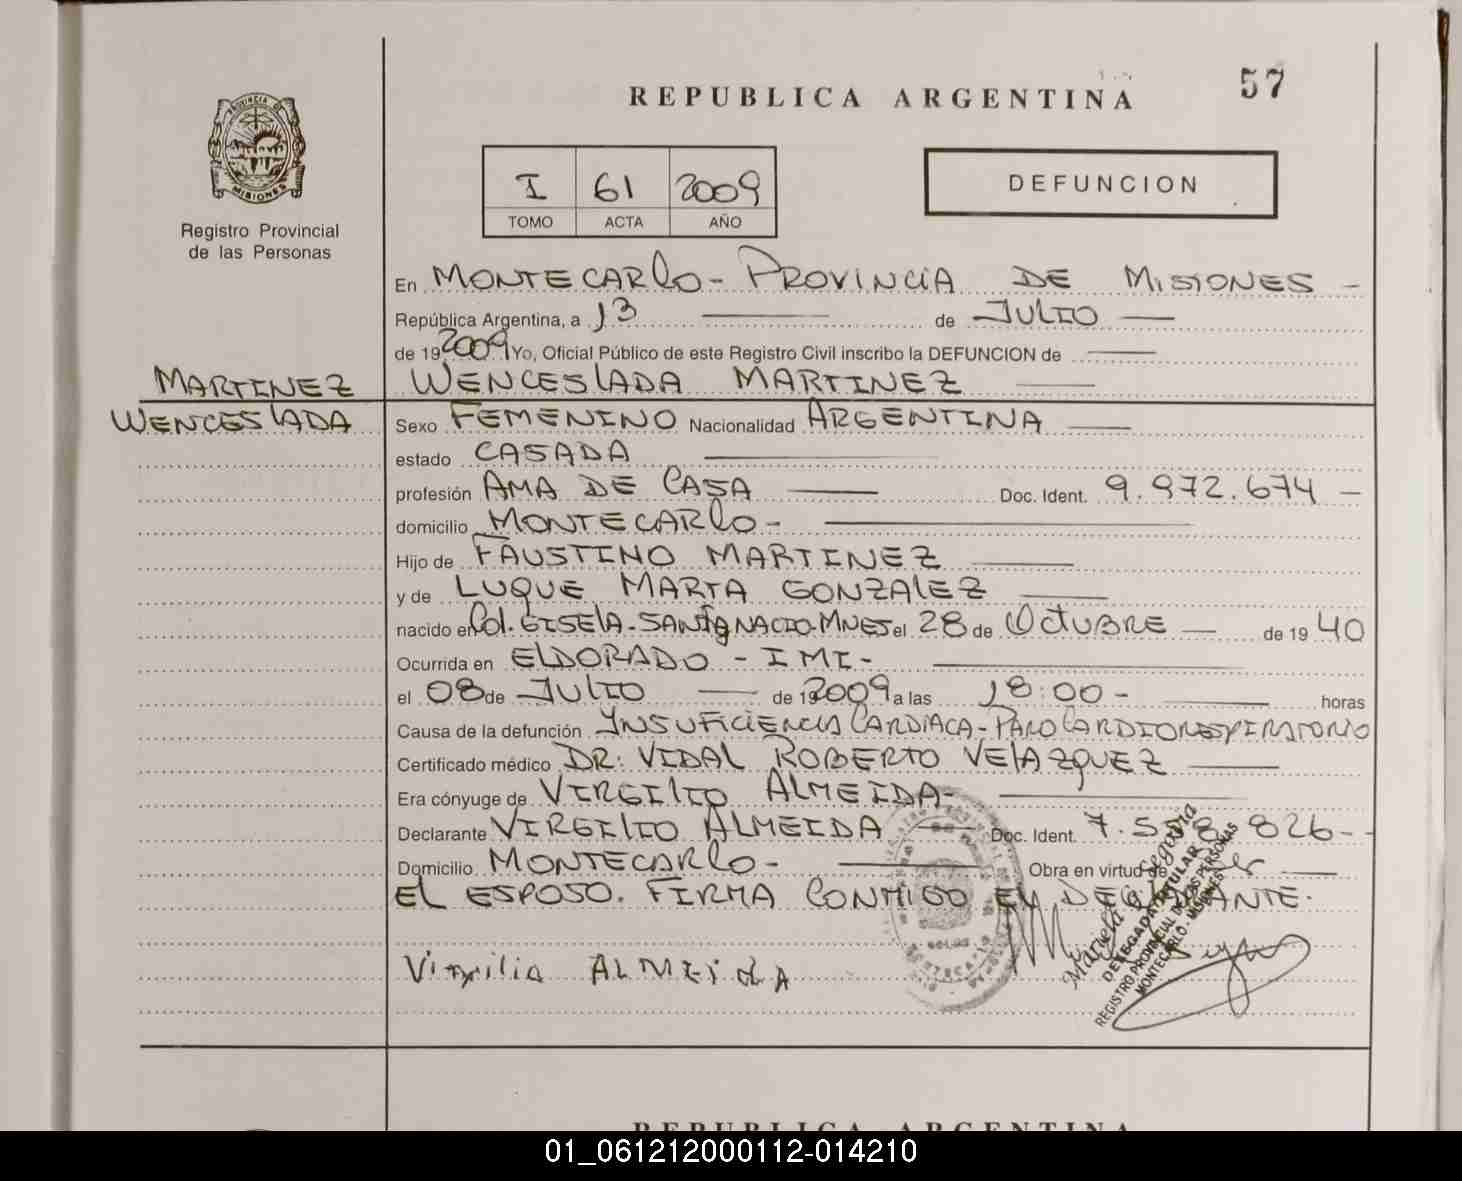 57
REPUBLICA ARGENTINA
PROVINCIA DE
MISIONES
Registro Provincial
de las Personas
I 61 2009
TOMO ACTA AÑO
DEFUNCION
En MONTECARLO - PROVINCIA DE MISIONES -
República Argentina, a 13 de JULIO
de 19 2009 Yo, Oficial Público de este Registro Civil inscribo la DEFUNCION de
MARTINEZ WENCESLADA MARTINEZ
WENCESLADA Sexo FEMENINO Nacionalidad ARGENTINA
estado CASADA
profesión AMA DE CASA Doc. Ident. 9.972.674 -
domicilio MONTECARLO -
Hijo de FAUSTINO MARTINEZ
y de LUQUE MARTA GONZALEZ
nacido en Col. GISELA - SAN IGNACIO - MNES el 28 de OCTUBRE de 19 40
Ocurrida en ELDORADO - IMI -
el 08 de JULIO de 19 2009 a las 18:00 - horas
Causa de la defunción INSUFICIENCIA CARDIACA - PARO CARDIORESPIRATORIO
Certificado médico DR: VIDAL ROBERTO VELAZQUEZ
Era cónyuge de VIRGILIO ALMEIDA -
Declarante VIRGILIO ALMEIDA Doc. Ident. 7.558.826 -
Domicilio MONTECARLO - Obra en virtud de ser
EL ESPOSO. FIRMA CONMIGO EL DECLARANTE.
ALMEIDA
Mariela
DELEGADA TITULAR
REGISTRO PROVINCIAL DE LAS PERSONAS
MONTECARLO - MISIONES
REPUBLICA ARGENTINA
01_061212000112-014210